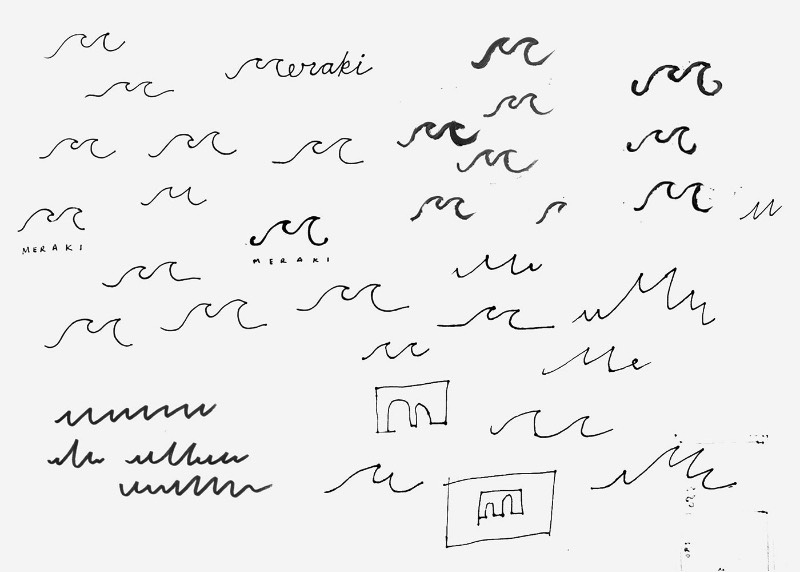 Meraki
MERAKI
MERAKI